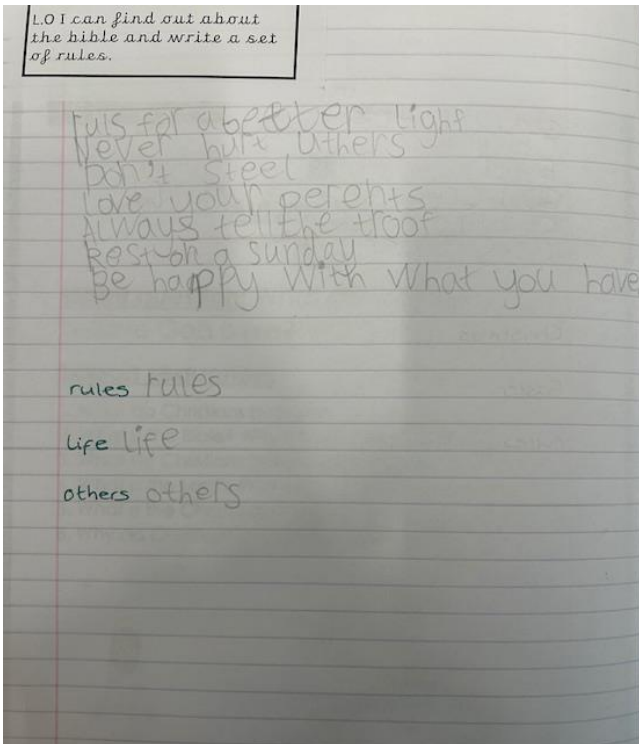 L.O I can find out about
the bible and write a set
of rules.
ruls for a better Light
Never hurt uthers
Don't steel
Love your perents
Always tell the troof
Rest on a sunday
Be happy With What you have
rules rules
life life
others others